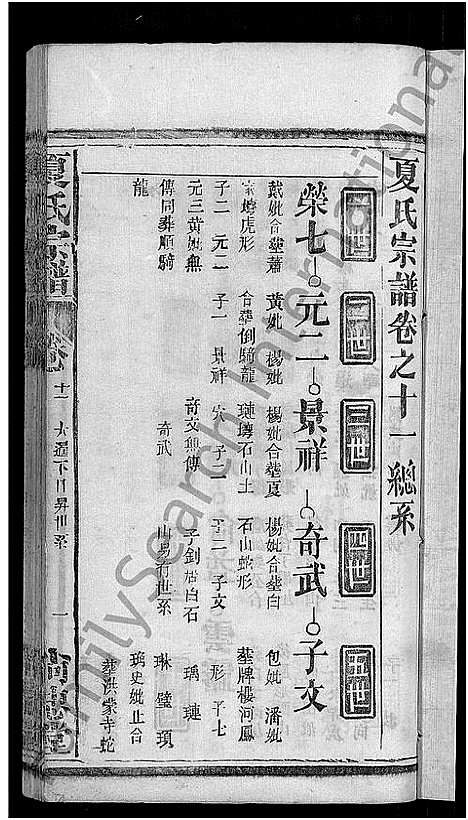 夏氏宗譜卷之十一 總系
一世 二世 三世 四世 五世
榮七 元二 景祥 奇武 子文
戴妣合塟蕭 黃妣 楊妣 楊妣合塟夏 楊妣合塟白 包妣 潘妣
家塆虎形 合塟倒騎龍 璉塆石山土 石山蛇形 塟牌樓河鳳
子二 元二 子一 景祥 穴 子二 子二 子文 形 子七
元三黃妣無 奇交無傳 子釗居白石 瑀 璉
傳同塟順騎 奇武 山易有世系 琳 璧 瑣
龍 璃史妣止合
塟洪蒙寺蛇
夏氏宗譜 卷 十一 一
FamilySearch International